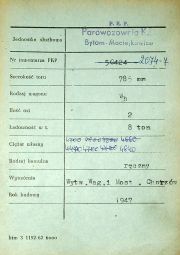 P. K. P.
Jednostka służbowa
Parowozownia Kl.
Bytom-Maciejkowice
Nr inwentarza PKP
50424 2074-7
Szerokość toru
785 mm
Rodzaj wagonu
Wh
Ilość osi
2
Ładowność w t.
8 ton
Ciężar własny
4240
Rodzaj hamulca
ręczny
Wytwórnia
Wytw.Wag.i Most. Chorzów
Rok budowy
1947